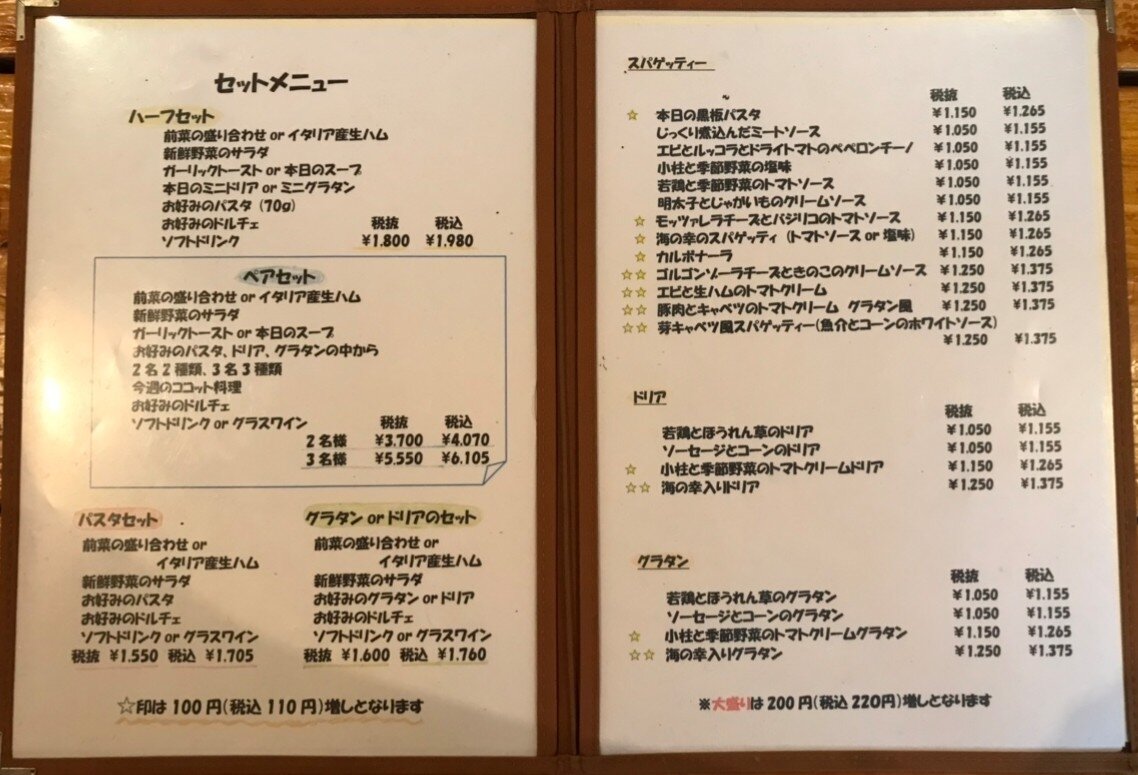 セットメニュー
ハーフセット
前菜の盛り合わせ or イタリア産生ハム
新鮮野菜のサラダ
ガーリックトースト or 本日のスープ
本日のミニドリア or ミニグラタン
お好みのパスタ (70g)
お好みのドルチェ 税抜 税込
ソフトドリンク ¥1.800 ¥1.980
ペアセット
前菜の盛り合わせ or イタリア産生ハム
新鮮野菜のサラダ
ガーリックトースト or 本日のスープ
お好みのパスタ、ドリア、グラタンの中から
2名2種類、3名3種類
今週のココット料理
お好みのドルチェ
ソフトドリンク or グラスワイン 税抜 税込
2名様 ¥3.700 ¥4.070
3名様 ¥5.550 ¥6.105
パスタセット
前菜の盛り合わせ or
イタリア産生ハム
新鮮野菜のサラダ
お好みのパスタ
お好みのドルチェ
ソフトドリンク or グラスワイン
税抜 ¥1.550 税込 ¥1.705
グラタン or ドリアのセット
前菜の盛り合わせ or
イタリア産生ハム
新鮮野菜のサラダ
お好みのグラタン or ドリア
お好みのドルチェ
ソフトドリンク or グラスワイン
税抜 ¥1.600 税込 ¥1.760
☆印は100円(税込110円)増しとなります
スパゲッティー
税抜 税込
☆ 本日の黒板パスタ ¥1.150 ¥1.265
じっくり煮込んだミートソース ¥1.050 ¥1.155
エビとルッコラとドライトマトのペペロンチーノ ¥1.050 ¥1.155
小柱と季節野菜の塩味 ¥1.050 ¥1.155
若鶏と季節野菜のトマトソース ¥1.050 ¥1.155
明太子とじゃがいものクリームソース ¥1.050 ¥1.155
☆ モッツァレラチーズとバジリコのトマトソース ¥1.150 ¥1.265
☆ 海の幸のスパゲッティ (トマトソース or 塩味) ¥1.150 ¥1.265
☆ カルボナーラ ¥1.150 ¥1.265
☆☆ ゴルゴンゾーラチーズときのこのクリームソース ¥1.250 ¥1.375
☆☆ エビと生ハムのトマトクリーム ¥1.250 ¥1.375
☆☆ 豚肉とキャベツのトマトクリーム グラタン風 ¥1.250 ¥1.375
☆☆ 芽キャベツ風スパゲッティー(魚介とコーンのホワイトソース)
¥1.250 ¥1.375
ドリア
税抜 税込
若鶏とほうれん草のドリア ¥1.050 ¥1.155
ソーセージとコーンのドリア ¥1.050 ¥1.155
☆ 小柱と季節野菜のトマトクリームドリア ¥1.150 ¥1.265
☆☆ 海の幸入りドリア ¥1.250 ¥1.375
グラタン
税抜 税込
若鶏とほうれん草のグラタン ¥1.050 ¥1.155
ソーセージとコーンのグラタン ¥1.050 ¥1.155
☆ 小柱と季節野菜のトマトクリームグラタン ¥1.150 ¥1.265
☆☆ 海の幸入りグラタン ¥1.250 ¥1.375
※大盛りは200円(税込220円)増しとなります